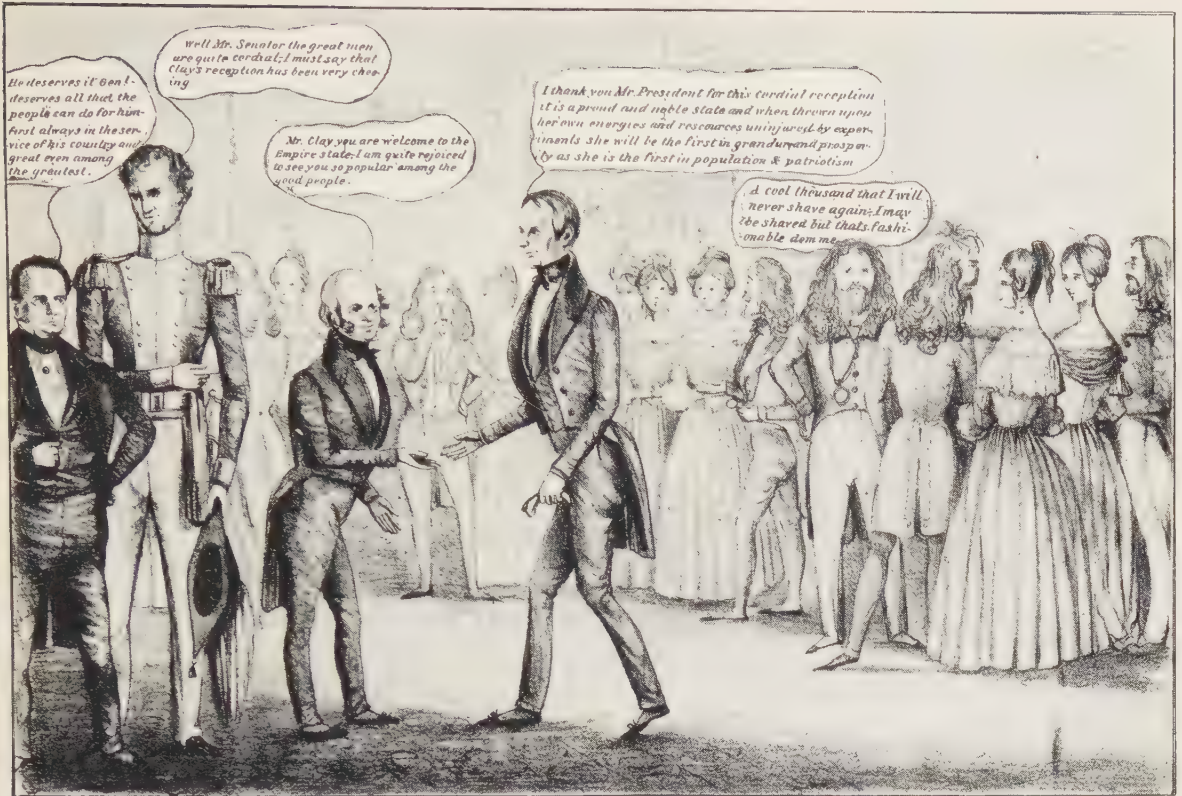 He deserves it Genl.-
deserves all that the
people can do for him-
first always in the ser-
vice of his country and
great even among
the greatest.
Well Mr. Senator the great men
are quite cordial; I must say that
Clay's reception has been very chee-
ing
Mr. Clay you are welcome to the
Empire state; I am quite rejoiced
to see you so popular among the
good people.
I thank you Mr. President for this cordial reception
it is a proud and noble state and when thrown upon
her own energies and rescources uninjured by exper-
iments she will be the first in grandur and prosper-
ity as she is the first in population & patriotism
A cool thousand that I will
never shave again; I may
be shaved but thats fashi-
onable dem me